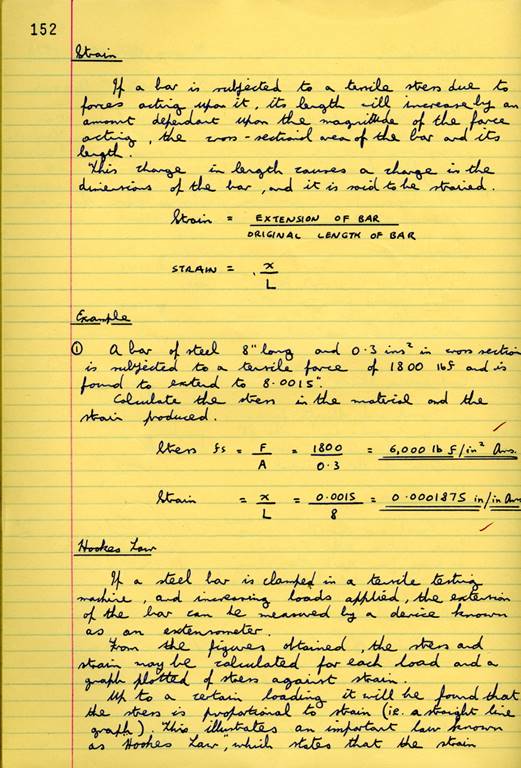 152
Strain
If a bar is subjected to a tensile stress due to
forces acting upon it, its length will increase by an
amount dependant upon the magnitude of the force
acting, the cross-sectional area of the bar and its
length.
This change in length causes a change in the
dimensions of the bar, and it is said to be strained.
Strain = EXTENSION OF BAR
ORIGINAL LENGTH OF BAR
STRAIN = x
L
Example
① A bar of steel 8" long and 0·3 ins² in cross section
is subjected to a tensile force of 1800 lbf and is
found to extend to 8·0015".
Calculate the stress in the material and the
strain produced.
Stress fs = F = 1800 = 6,000 lb f/in² Ans.
A 0·3
Strain = x = 0·0015 = 0·0001875 in/in Ans
L 8
Hookes Law
If a steel bar is clamped in a tensile testing
machine, and increasing loads applied, the extension
of the bar can be measured by a device known
as an extensometer.
From the figures obtained, the stress and
strain may be calculated for each load and a
graph plotted of stress against strain.
Up to a certain loading it will be found that
the stress is proportional to strain (ie. a straight line
graph). This illustrates an important law known
as "Hookes Law", which states that the strain